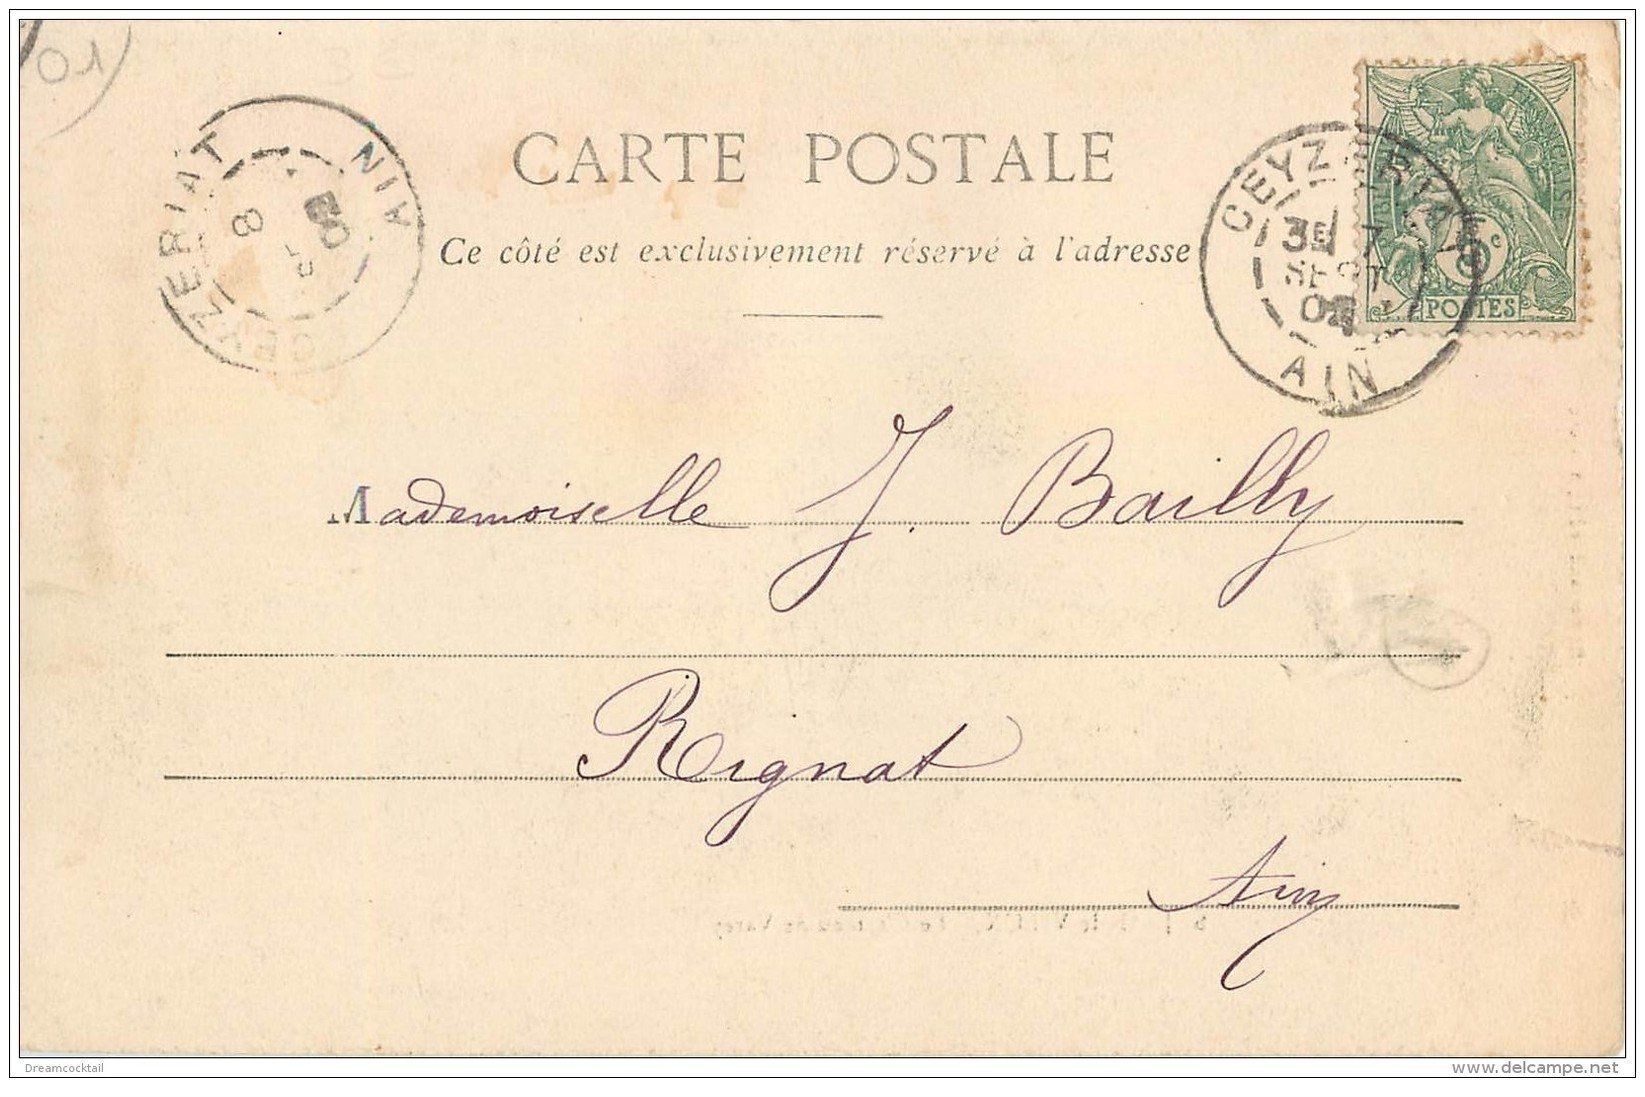 01
CARTE POSTALE
Ce côté est exclusivement réservé à l'adresse
CEYZERIAT
AIN
8
CEYZERIAT
3E
7
SEPT
AIN
5c
POSTES
Mademoiselle J. Bailly
Rignat
Ain
Dreamcocktail
www.delcampe.net